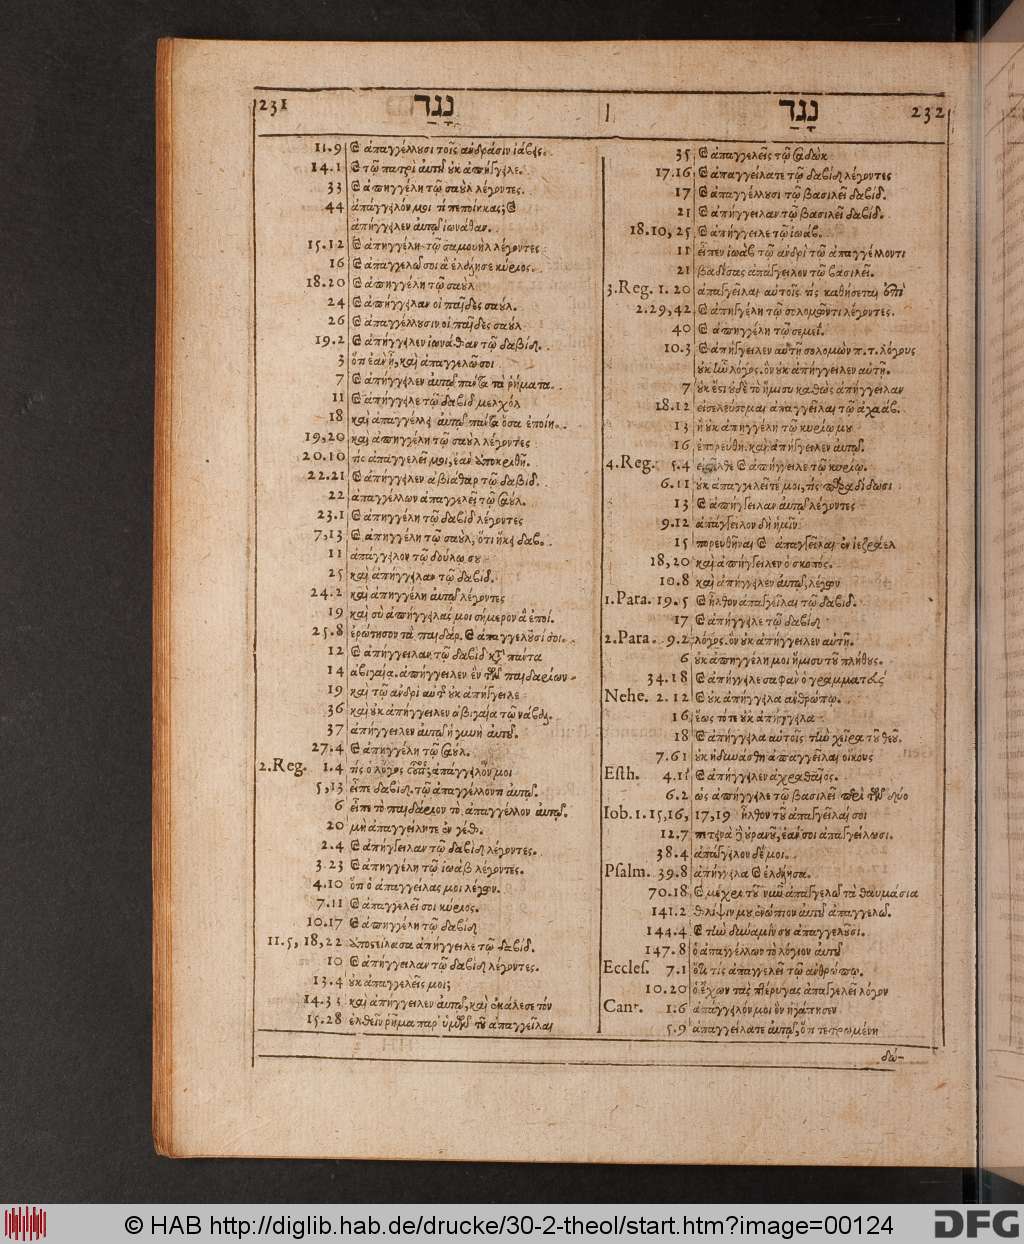 231 נָגַד
11.9 ἀπαγγέλλουσι τοῖς ἀνδράσιν ἰαβής.
14.1 τῷ πατρὶ αὐτοῦ οὐκ ἀπήγγειλε.
33 ἀπηγγέλη τῷ σαοὺλ λέγοντες.
44 ἀπάγγειλόν μοι τί πεποίηκας;
ἀπήγγειλεν αὐτῷ ἰωνάθαν.
15.12 ἀπηγγέλη τῷ σαμουὴλ λέγοντες
16 ἀπαγγελῶ σοι ἃ ἐλάλησε κύριος.
18.20 ἀπηγγέλη τῷ σαοὺλ
24 ἀπήγγειλαν οἱ παῖδες σαούλ.
26 ἀπαγγέλλουσιν οἱ παῖδες σαοὺλ
19.2 ἀπήγγειλεν ἰωνάθαν τῷ δαβίδ.
3 καὶ ἀπαγγελῶ σοι
7 ἀπήγγειλεν αὐτῷ πάντα τὰ ῥήματα.
11 ἀπήγγειλε τῷ δαβὶδ μελχὸλ
18 καὶ ἀπαγγέλλει αὐτῷ πάντα ὅσα ἐποίη.
19,20 καὶ ἀπηγγέλη τῷ σαοὺλ λέγοντες
20.10 τίς ἀπαγγελεῖ μοι, ἐὰν ἀποκριθῇ.
22.21 ἀπήγγειλεν ἀβιάθαρ τῷ δαβίδ.
22 ἀπαγγέλλων ἀπαγγελεῖ τῷ σαούλ.
23.1 ἀπηγγέλη τῷ δαβὶδ λέγοντες
7,13 ἀπηγγέλη τῷ σαοὺλ, ὅτι ἥκει δαβ.
11 ἀπάγγειλον τῷ δούλῳ σου
25 καὶ ἀπήγγειλαν τῷ δαβίδ.
24.2 καὶ ἀπηγγέλη αὐτῷ λέγοντες
19 καὶ σὺ ἀπήγγειλάς μοι σήμερον ἃ ἐποί.
25.8 ἐρώτησον τὰ παιδάρ. ἀπαγγελοῦσί σοι.
12 ἀπήγγειλαν τῷ δαβὶδ πάντα
14 ἀβιγαία. ἀπήγγειλεν ἓν τῶν παιδαρίων
19 καὶ τῷ ἀνδρὶ αὐτῆς οὐκ ἀπήγγειλε
36 καὶ οὐκ ἀπήγγειλεν ἀβιγαία τῷ νάβαλ.
37 ἀπήγγειλεν αὐτῷ ἡ γυνὴ αὐτοῦ.
27.4 ἀπηγγέλη τῷ σαούλ.
2.Reg. 1.4 τίς ὁ λόγος οὗτος; ἀπάγγειλόν μοι
5,13 εἶπε δαβὶδ τῷ ἀπαγγέλλοντι αὐτῷ.
6 εἶπε τὸ παιδάριον τὸ ἀπαγγέλλον αὐτῷ.
20 μὴ ἀπαγγείλητε ἐν γέθ.
2.4 ἀπήγγειλαν τῷ δαβὶδ λέγοντες.
3.23 ἀπηγγέλη τῷ ἰωὰβ λέγοντες.
4.10 ὅτι ὁ ἀπαγγείλας μοι λέγων.
7.11 ἀπαγγελεῖ σοι κύριος.
10.17 ἀπηγγέλη τῷ δαβὶδ
11.5,18,22 ἀποστείλασα ἀπήγγειλε τῷ δαβίδ.
10 ἀπήγγειλαν τῷ δαβὶδ λέγοντες.
13.4 οὐκ ἀπαγγελεῖς μοι;
14.33 καὶ ἀπήγγειλεν αὐτῷ, καὶ ἐκάλεσε τὸν
15.28 ἐλθεῖν ῥῆμα παρ' ὑμῶν τοῦ ἀπαγγεῖλαι
נָגַד 232
35 ἀπαγγελεῖς τῷ σαδὼκ
17.16 ἀπαγγείλατε τῷ δαβὶδ λέγοντες
17 ἀπαγγέλλουσι τῷ βασιλεῖ δαβίδ.
21 ἀπήγγειλαν τῷ βασιλεῖ δαβίδ.
18.10,25 ἀπήγγειλε τῷ ἰωάβ.
11 εἶπεν ἰωὰβ τῷ ἀνδρὶ τῷ ἀπαγγέλλοντι
21 βαδίσας ἀπάγγειλον τῷ βασιλεῖ.
3.Reg. 1.20 ἀπαγγεῖλαι αὐτοῖς τίς καθήσεται ἐπὶ
2.29,42 ἀπηγγέλη τῷ σολομῶντι λέγοντες.
40 ἀπηγγέλη τῷ σεμεΐ.
10.3 ἀπήγγειλεν αὐτῇ σολομὼν π.τ.λόγους
οὐκ ἦν λόγος. ὃν οὐκ ἀπήγγειλεν αὐτῇ.
7 οὐκ ἔστι οὐδὲ τὸ ἥμισυ καθὼς ἀπήγγειλαν
18.12 εἰσελεύσομαι ἀπαγγεῖλαι τῷ ἀχαάβ.
13 ἢ οὐκ ἀπηγγέλη τῷ κυρίῳ μου
16 ἐπορεύθη. καὶ ἀπήγγειλεν αὐτῷ.
4.Reg. 5.4 εἰσῆλθε ἀπήγγειλε τῷ κυρίῳ.
6.11 οὐκ ἀπαγγελεῖτέ μοι, τίς προδίδωσι
13 ἀπήγγειλαν αὐτῷ λέγοντες
9.12 ἀπάγγειλον δὴ ἡμῖν
15 πορευθῆναι ἀπαγγεῖλαι ἐν ἰεζραὲλ
18,20 καὶ ἀπήγγειλεν ὁ σκοπός.
10.8 καὶ ἀπήγγειλεν αὐτῷ, λέγων
1.Para. 19.5 ἦλθον ἀπαγγεῖλαι τῷ δαβίδ.
17 ἀπήγγειλε τῷ δαβὶδ
2.Para. 9.2 λόγος. ὃν οὐκ ἀπήγγειλεν αὐτῇ.
6 οὐκ ἀπηγγέλη μοι ἥμισυ τοῦ πλήθους.
34.18 ἀπήγγειλε σαφὰν ὁ γραμματεὺς
Nehe. 2.12 οὐκ ἀπήγγειλα ἀνθρώπῳ.
16 ἕως τότε οὐκ ἀπήγγειλα
18 ἀπήγγειλα αὐτοῖς τὴν χεῖρα τοῦ θεοῦ.
7.61 οὐκ ἠδυνάσθη ἀπαγγεῖλαι οἴκους
Esth. 4.11 ἀπήγγειλεν ἀχραθαῖος.
6.2 ὡς ἀπήγγειλε τῷ βασιλεῖ περὶ τῶν δύο
Iob. 1.15,16,17,19 ἦλθον τοῦ ἀπαγγεῖλαί σοι
12.7 πετεινὰ οὐρανοῦ, ἐάν σοι ἀπαγγείλωσι.
38.4 ἀπάγγειλον δέ μοι.
Psalm. 39.8 ἀπήγγειλα ἐλάλησα.
70.18 μέχρι τοῦ νῦν ἀπαγγελῶ τὰ θαυμάσια
141.2 θλίψιν μου ἐνώπιον αὐτοῦ ἀπαγγελῶ.
144.4 τὴν δύναμίν σου ἀπαγγελοῦσι.
147.8 ὁ ἀπαγγέλλων τὸ λόγιον αὐτοῦ
Eccles. 7.1 ὅτι τίς ἀπαγγελεῖ τῷ ἀνθρώπῳ.
10.20 ὁ ἔχων τὰς πτέρυγας ἀπαγγελεῖ λόγον
Cant. 1.6 ἀπάγγειλόν μοι ὃν ἠγάπησεν
5.9 ἀπαγγείλατε αὐτῷ, ὅτι τετρωμένη
© HAB http://diglib.hab.de/drucke/30-2-theol/start.htm?image=00124 DFG